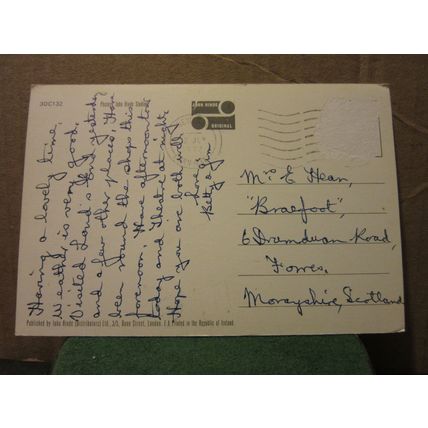 3DC132
Photo: John Hinde Studios
JOHN HINDE
ORIGINAL
Having a lovely time.
Weather is very good.
Visited Land's End yesterday
and a few other places. Have
been round the shops this
forenoon. Have afternoon tour
today and Theatre at night.
Hope you are both well
Love
Betty & Jim
Mrs E Hean,
"Braefoot",
6 Drumduan Road,
Forres,
Morayshire, Scotland
Published by John Hinde (Distributors) Ltd., Street, London, E.C Printed in the Republic of Ireland